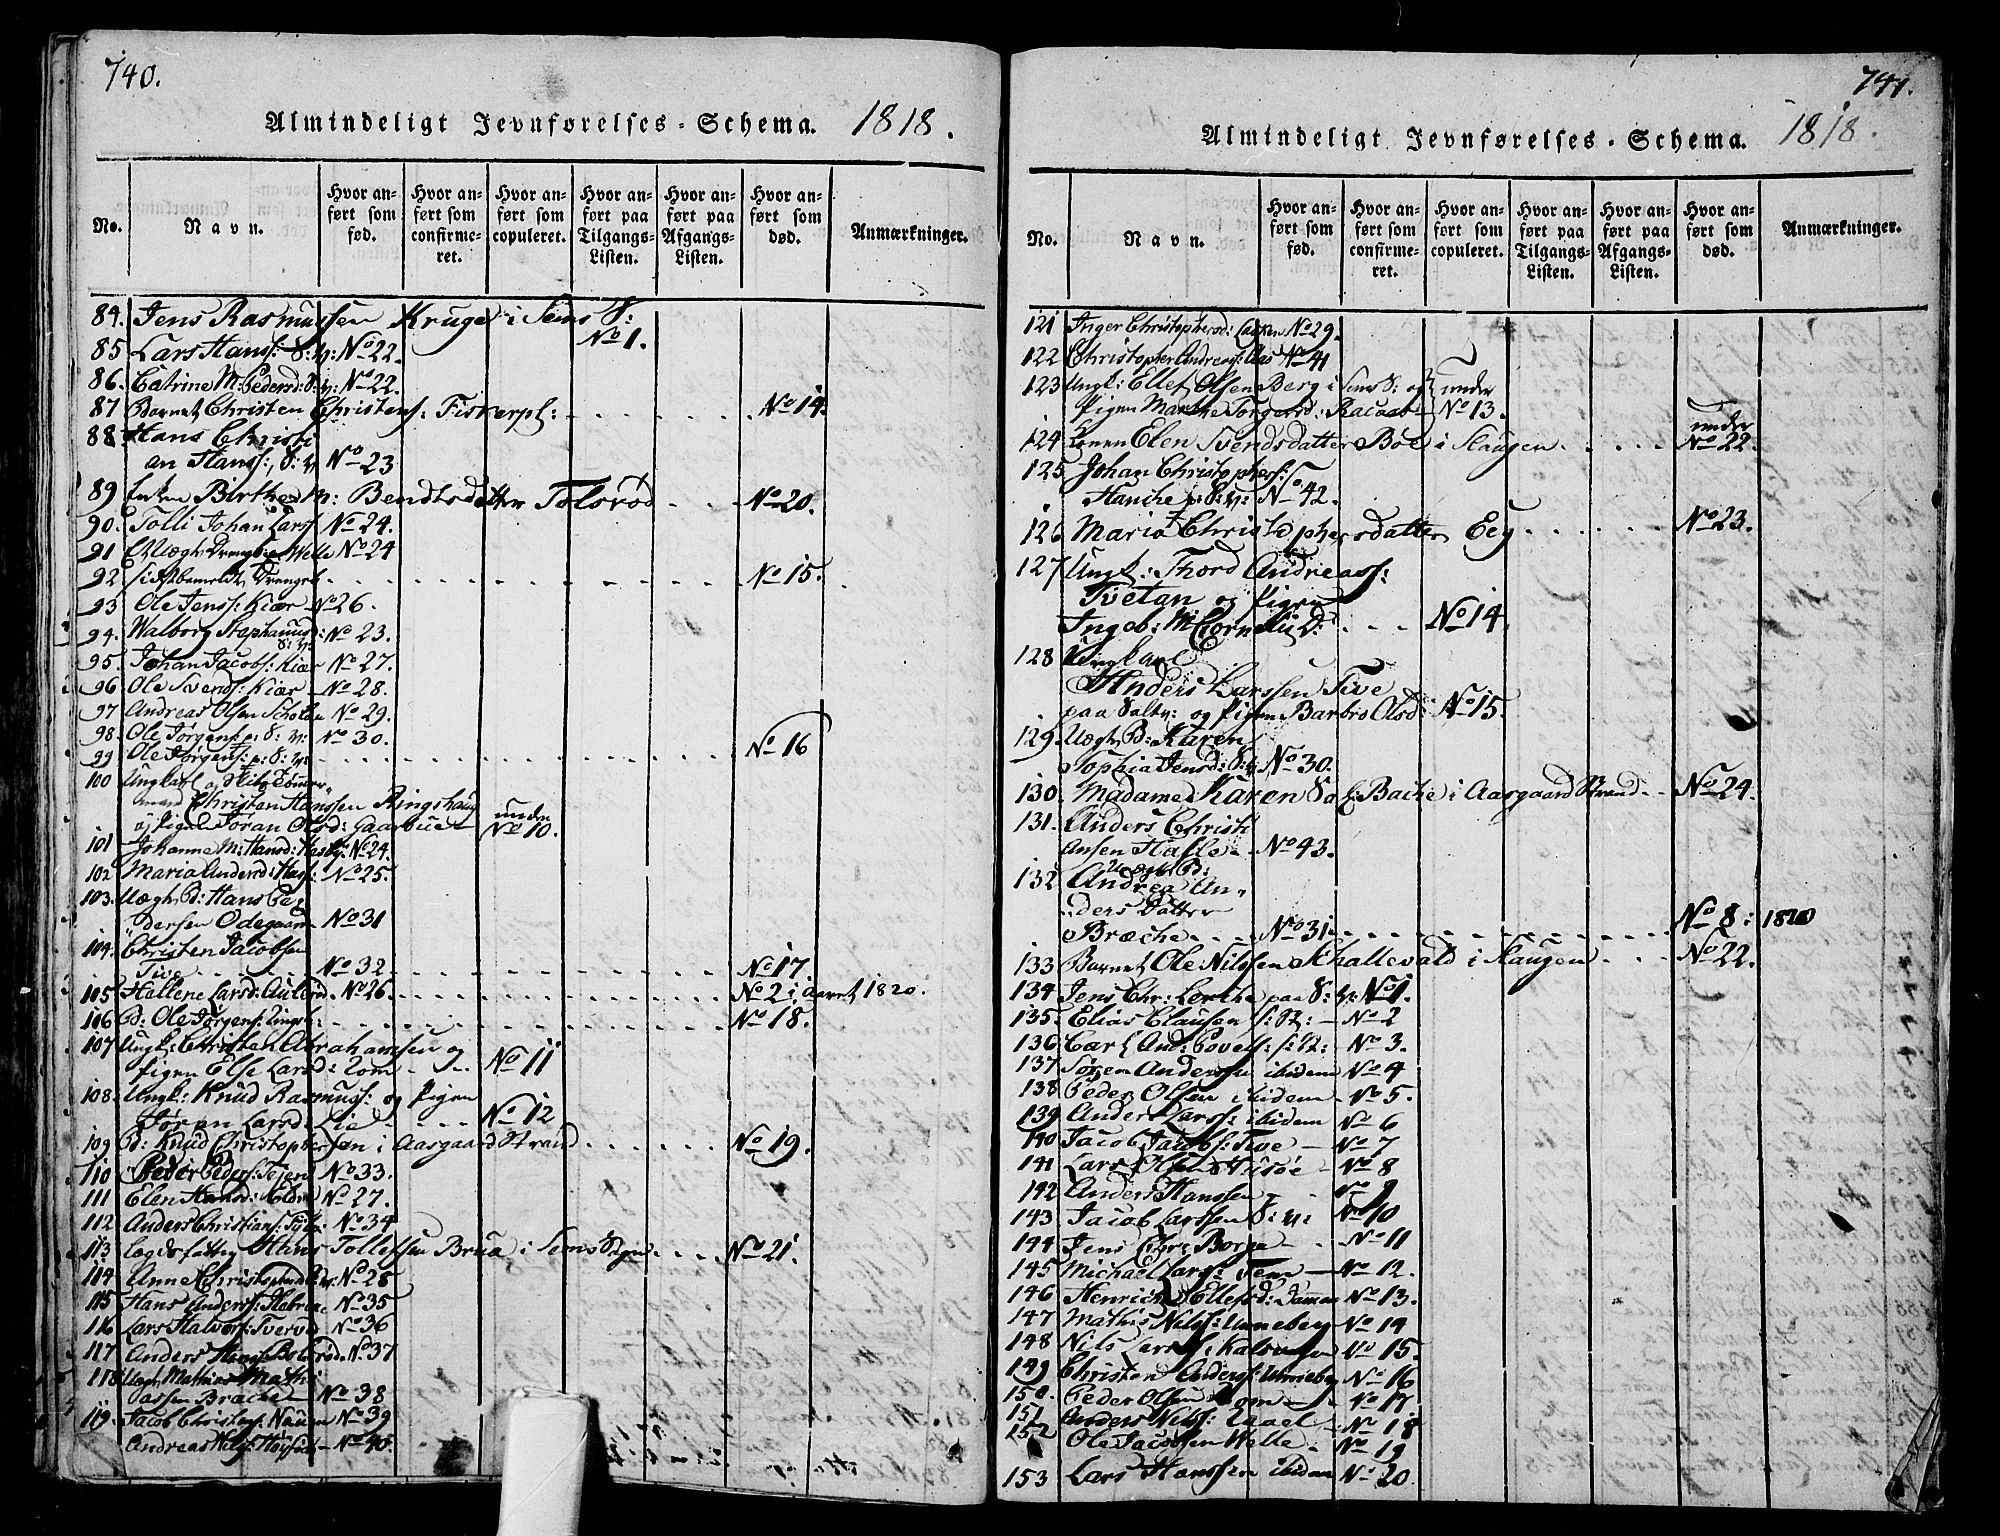 740.
Almindeligt Jevnførelses-Schema. 1818.
No.
Navn.
Hvor anført som fød.
Hvor anført som confirmeret.
Hvor anført som copuleret.
Hvor anført paa Tilgangs-Listen.
Hvor anført paa Afgangs-Listen.
Hvor anført som død.
Anmærkninger.
84. Jens Rasmussen Kruge i Sems S:
No 1.
85 Lars Hanss: S: v: No 22.
86. Catrine M: Pedersd: S: v: No 22.
87 Barnet Christen Christens: Fiskerpl: No 14.
88 Hans Christi
an Hanss: S: v No 23
89 Enken Birthe M: Bendtsdatter Tolsrød No 20.
90. Tolli Johan Larss No 24.
91 Uægte Drengebarn Welle No 24
92 sidstbemeldt Drengeb. No 15.
93 Ole Jenss: Kiær No 26.
94. Walborg Stephanusd: No 23.
S: v:
95. Johan Jacobs: Kiær No 27.
96 Ole Svends: Kiær No 28.
97 Andreas Olsen No 29.
98. Ole Jørgens: p: S: v: No 30.
99 Ole Jørgens: p: S: v: No 16
100 Ungkarl og Skibs Tømmer
mand Christen Hanssen Ringshaug
og Pigen Jøran Olsd: Gaarbue under No 10.
101 Johanne M: Hansd: No 24.
102 Maria Andersd: No 25.
103. Uægte B: Hans Pe
dersen Odegaarn No 31
104. Christen Jacobsen
Tive No 32. No 17.
105 Hellene Larsd: Aulerød No 26. No 2 i Aaret 1820.
106 B: Ole Jørgens: No 18.
107 Ungk: Christen Abrahamsen og
Pigen Else Larsd: Rom No 11
108. Ungk: Knud Rasmuss: og Pigen
Jøran Larsd: Lie No 12
109 B: Knud Christophersen i Aasgaard Strand No 19.
110 Peder Peders: No 33.
111 Elen Hansd: No 27.
112 Anders Christians: No 34
113 Lægdsfattig Hans Tollefsen Brua i Sems Sogn No 21.
114 Anne Christophersd: v: No 28
115 Hans Anderss: No 35
116 Lars Halvors: Tverved No 36
117 Anders Hans: Bolerød No 37
118 Uægte Mathias Mathi
assen Bræche No 38
119. Jacob Christophs: Nauen No 39
Andreas Nils: No 40.
741.
Almindeligt Jevnførelses-Schema. 1818.
No.
Navn.
Hvor anført som fød.
Hvor anført som confirmeret.
Hvor anført som copuleret.
Hvor anført paa Tilgangs-Listen.
Hvor anført paa Afgangs-Listen.
Hvor anført som død.
Anmærkninger.
121 Inger Christophersd: No 29.
122 Christopher Andreass: Aas No 41
123 Ungk: Ellef Olsen Berg i Sems S: og under
Pigen Marthe Torgersd: No 13.
124 Konen Elen Svendsdatter Bøe i Slaugen under No 22.
125 Johan Christophers:
Hanche p: S: v: No 42.
126 Maria Christophersdatter Eeg No 23.
127 Ungk: Thord Andreass:
Tvetan og Pigen
Ingeb: M Cornelii D: No 14.
128 Ungkarl
Anders Larssen Tive
paa Valløe: og Pigen Barbro Olsd: No 15.
129. Uægte B: Karen
Sophia Jensd: S: v: No 30.
130. Madame Karen Bache i Aasgaard Strand No 24.
131. Anders Christi
ansen Hasle No 43.
132 Uægte B:
Andrea An
ders Datter
Bræche No 31. No 8: 1820
133 Barnet Ole Nilssen Schallevald i Slaugen No 22.
134 Jens Chr: Lerche paa S: v: No 1.
135. Elias Clausen No 2
136 Carl And: Povels: No 3.
137 Søren Andersen ibidem No 4
138 Peder Olsen ibidem No 5.
139 Anders Larss: ibidem No 6
140 Jacob Jacobs: Tive No 7
141 Lars Olsen Husøe No 8
142 Anders Hanssen No 9
143 Jacob Larssen S: v: No 10
144 Jens Chr: Borge No 11
145 Michael Lars: Fem No 12.
146 Henrich Tollefsd: Dammen No 13.
147 Mathis Nilss: Unneberg No 14
148 Nils Larss: No 15.
149 Christen Anders: Unneberg No 16
150. Peder Olsen Rom No 17
151 Anders Nils: No 18
152 Ole Jacobsen Welle No 19
153 Lars Hanssen ibidem No 20.